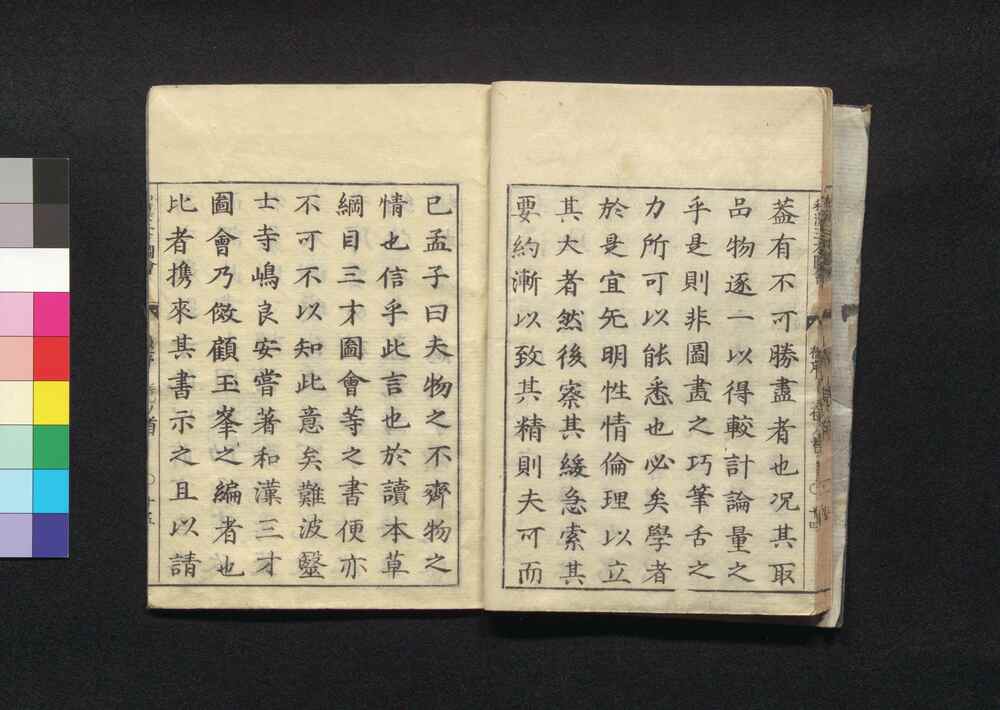 葢有不可勝盡者也况其取
品物逐一以得較計論量之
乎是則非圖畵之巧筆舌之
力所可以能悉也必矣學者
於是宜先明性情倫理以立
其大者然後察其緩急索其
要約漸以致其精則夫可而
已孟子曰夫物之不齊物之
情也信乎此言也於讀本草
綱目三才圖會等之書便亦
不可不以知此意矣難波毉
士寺嶋良安嘗著和漢三才
圖會乃傚顧王峯之編者也
比者携來其書示之且以請